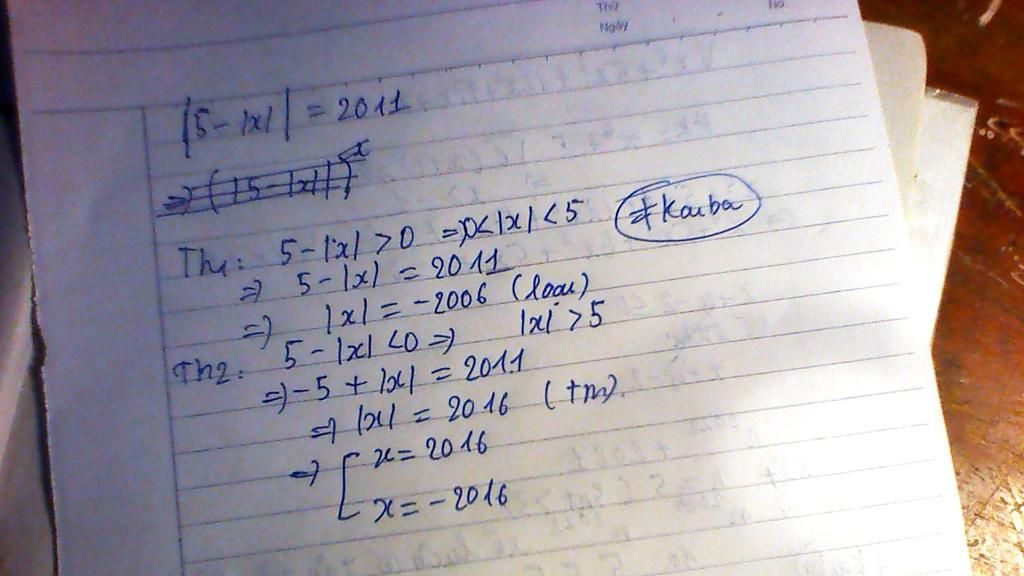 Thứ
No
Ngày
|5-|x|| = 2011
Th1: 5-|x| > 0 => 0<|x| < 5 #Kaiba
=> 5-|x| = 2011
=> |x| = -2006 (loại)
Th2: 5-|x| <0 => |x| > 5
=> -5 + |x| = 2011
=> |x| = 2016 (tm).
=> [ x = 2016
x = -2016